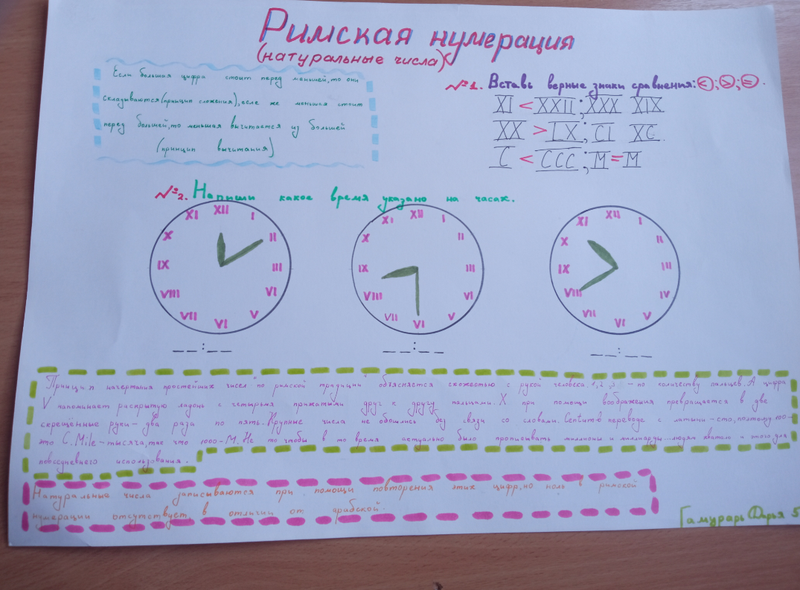 Римская нумерация
(натуральные числа)
Если большая цифра стоит перед меньшей, то они
складываются (принцип сложения), если же меньшая стоит
перед большей, то меньшая вычитается из большей
(принцип вычитания)
№1. Вставь верные знаки сравнения: <; >; =.
XI < XXII; XXX XIX
XX > IX; CI XC
C < CCC; M = M
№2. Напиши какое время указано на часах.
XII I II III IV V VI VII VIII IX X XI
XII I II III IV V VI VII VIII IX X XI
XII I II III IV V VI VII VIII IX X XI
__:__ __:__ __:__
Принцип начертания простейших чисел по римской традиции объясняется схожестью с рукой человека 1, 2, 3 - по количеству пальцев. А цифра
V напоминает раскрытую ладонь с четырьмя прижатыми друг к другу пальцами. X при помощи воображения превращается в две
скрещенные руки - два раза по пять. Крупные числа не обошлись без связи со словами. Centum в переводе с латыни - сто, поэтому
это C. Mile - тысяча, так что 1000 - M. Не то чтобы в то время актуально было прописывать миллионы и миллиарды людям хватало и этого для
повседневного использования.
Натуральные числа записываются при помощи повторения этих цифр, но ноль в римской
нумерации отсутствует в отличии от арабской
Гамурарь Дарья 5